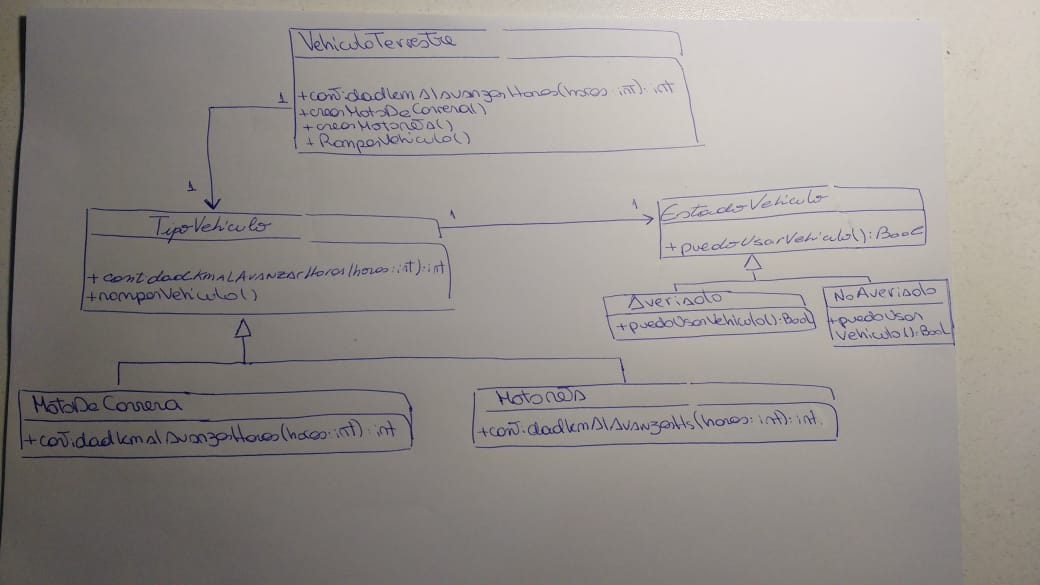 VehiculoTerrestre
+cantidadKmAlAvanzarHoras(horas:int):int
+crearMotoDeCarrera()
+crearMotoneta()
+RomperVehiculo()
1
1
TipoVehiculo
+cantidadKmALAvanzarHoras(horas:int):int
+romperVehiculo()
1
1
EstadoVehiculo
+puedoUsarVehiculo():Bool
Averiado
+puedoUsarVehiculo():Bool
NoAveriado
+puedoUsar
Vehiculo():Bool
MotoDeCarrera
+cantidadKmAlAvanzarHoras(horas:int):int
Motoneta
+cantidadKmAlAvanzarHs(horas:int):int.